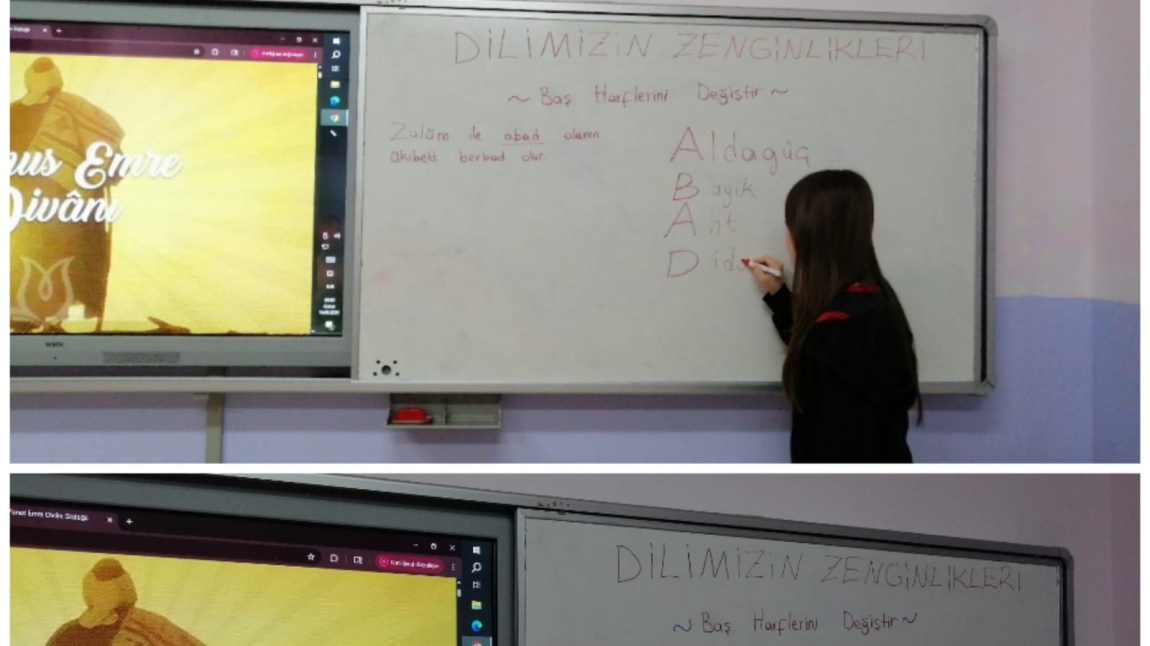 DİLİMİZİN ZENGİNLİKLERİ
~ Baş Harflerini Değiştir ~
Zulüm ile abad olanın
akıbeti berbad olur
Aldagüç
Bayık
Aht
Did
nus Emre
Divânı
Yunus Emre Divân Sözlüğü
DİLİMİZİN ZENGİNLİKLERİ
~ Baş Harflerini Değiştir ~